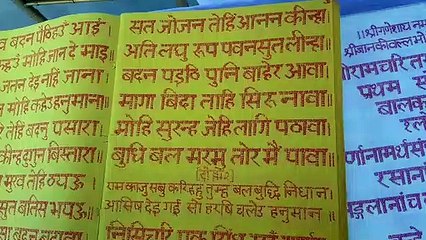 बदन पैठिहउँ आई।
मोहि जान दे माई
जतन देइ नहिं जाना।
मोहि कहेउ हनुमाना।
तेहिं बदनु पसारा।
कीन्ह दुगुन बिस्तारा।
मुख तेहिं ठयऊ।
सुत बत्तिस भयऊ।
सत जोजन तेहिं आनन कीन्हा
अति लघु रूप पवनसुत लीन्हा।
बदन पइठि पुनि बाहेर आवा
मागा बिदा ताहि सिरु नावा।
मोहि सुरन्ह जेहि लागि पठावा।
बुधि बल मरमु तोर मैं पावा।
(दोहा 2)
राम काजु सबु करिहहु तुम्ह बल बुद्धि निधान।
आसिष देइ गई सो हरषि चलेउ हनुमान।
निसिचरि एक
॥श्री गणेशाय नम
श्रीजानकीवल्लभो
रामचरित
प्रथम स
बालक
श्लो
र्णानामर्थसं
रसाना
ङ्गलानां च